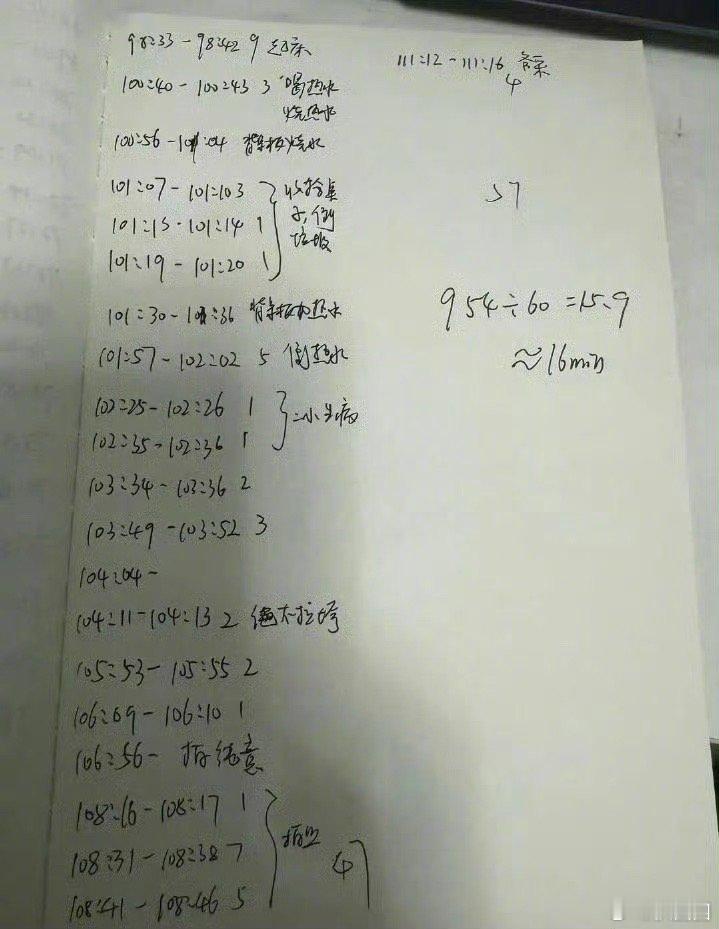 98:33-98:42 9 起床
100:40-100:43 3 喝热水
烧热水
100:56-101:04 烧水
101:07-101:103 收拾桌
101:13-101:14 1 子,倒
101:19-101:20 1 垃圾
101:30-101:36 热水
101:57-102:02 5 倒热水
102:25-102:26 1
102:35-102:36 1
103:34-103:36 2
103:49-103:52 3
104:04-
104:11-104:13 2
105:53-105:55 2
106:09-106:10 1
106:56-
108:16-108:17 1
108:31-108:38 7
47
108:41-108:46 5
111:12-111:16 备菜
4
57
954÷60=15.9
≈16min